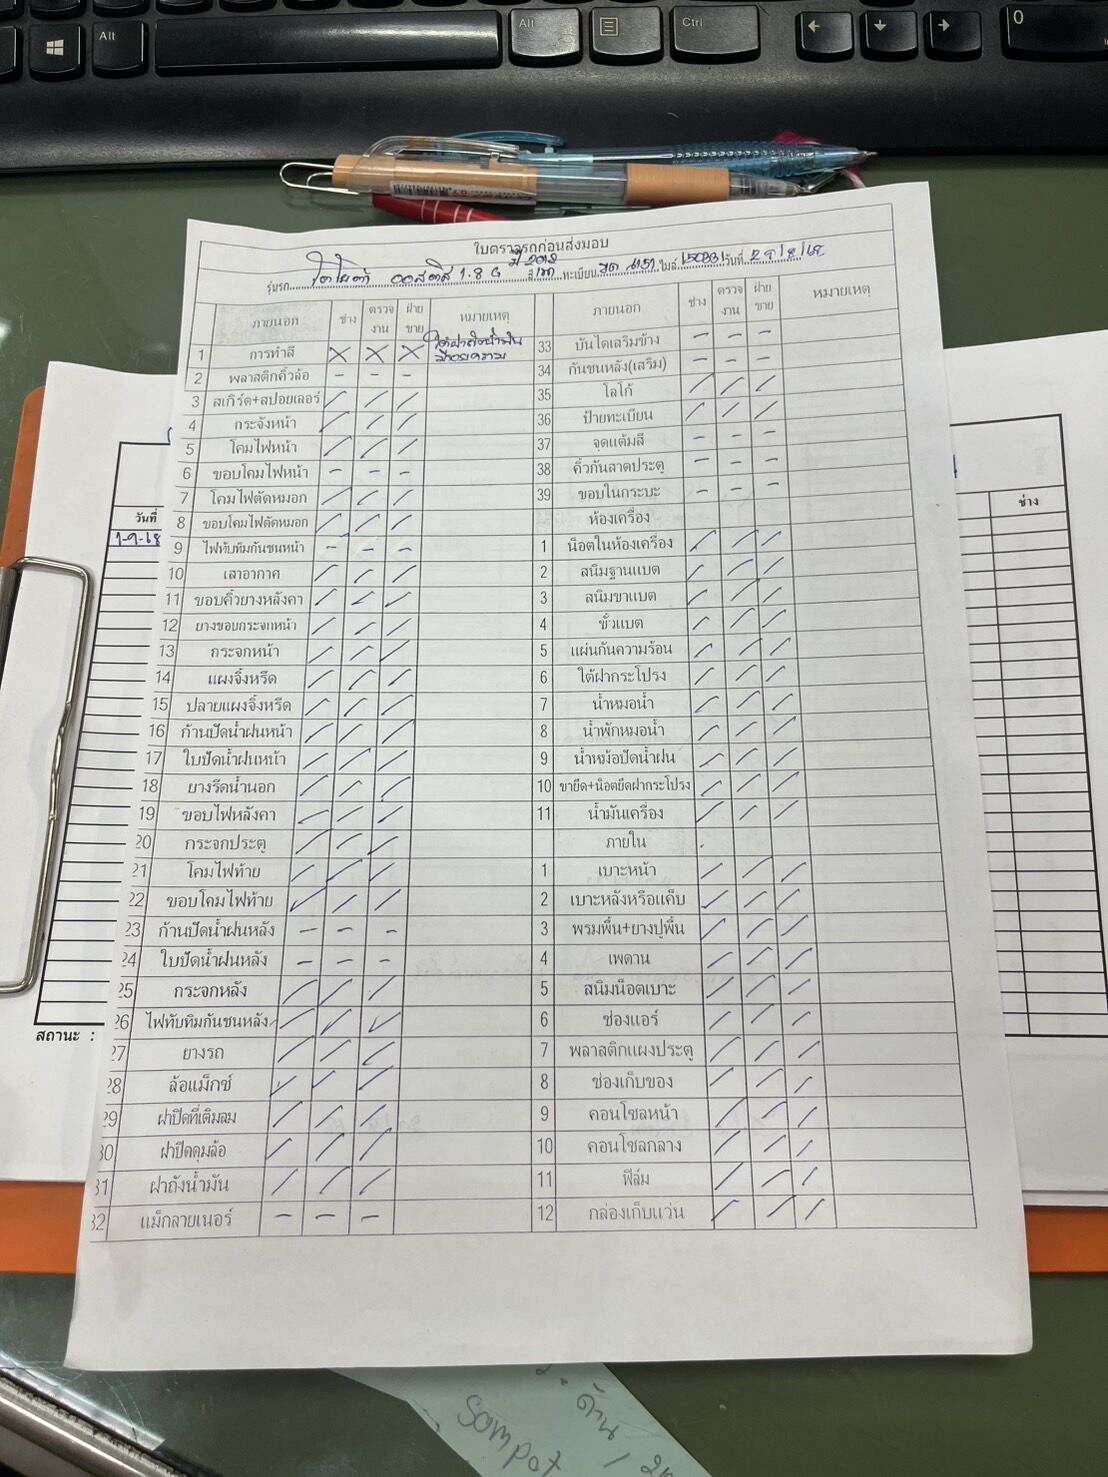 Alt
Alt
Ctrl
0
ใบตรวจรถก่อนส่งมอบ
ปี 2012
รุ่นรถ โตโยต้า อัลติส 1.8 G สี เทา ทะเบียน ไมล์ วันที่
ภายนอก ช่าง ตรวจงาน ฝ่ายขาย หมายเหตุ ภายนอก ช่าง ตรวจงาน ฝ่ายขาย หมายเหตุ
1 การทำสี × × ×
2 พลาสติกคิ้วล้อ - - -
3 สเกิร์ต+สปอยเลอร์ / / /
4 กระจังหน้า / / /
5 โคมไฟหน้า / / /
6 ขอบโคมไฟหน้า - - -
7 โคมไฟตัดหมอก / / /
8 ขอบโคมไฟตัดหมอก / / /
9 ไฟทับทิมกันชนหน้า - - -
10 เสาอากาศ / / /
11 ขอบคิ้วยางหลังคา / / /
12 ยางขอบกระจกหน้า / / /
13 กระจกหน้า / / /
14 แผงจิ้งหรีด / / /
15 ปลายแผงจิ้งหรีด / / /
16 ก้านปัดน้ำฝนหน้า / / /
17 ใบปัดน้ำฝนหน้า / / /
18 ยางรีดน้ำนอก / / /
19 ขอบไฟหลังคา / / /
20 กระจกประตู / / /
21 โคมไฟท้าย / / /
22 ขอบโคมไฟท้าย / / /
23 ก้านปัดน้ำฝนหลัง - - -
24 ใบปัดน้ำฝนหลัง - - -
25 กระจกหลัง / / /
26 ไฟทับทิมกันชนหลัง / / /
27 ยางรถ / / /
28 ล้อแม็กซ์ / / /
29 ฝาปิดที่เติมลม / / /
30 ฝาปิดดุมล้อ / / /
31 ฝาถังน้ำมัน / / /
32 แม็กลายเนอร์ - - -
33 บันไดเสริมข้าง - - -
34 กันชนหลัง(เสริม) - - -
35 โลโก้ / / /
36 ป้ายทะเบียน / / /
37 จุดแต้มสี - - -
38 คิ้วกันสาดประตู - - -
39 ขอบในกระบะ - - -
ห้องเครื่อง
1 น็อตในห้องเครื่อง / / /
2 สนิมฐานแบต / / /
3 สนิมขาแบต / / /
4 ขั้วแบต / / /
5 แผ่นกันความร้อน / / /
6 ใต้ฝากระโปรง / / /
7 น้ำหม้อน้ำ / / /
8 น้ำพักหม้อน้ำ / / /
9 น้ำหม้อปัดน้ำฝน / / /
10 ขายึด+น็อตยึดฝากระโปรง / / /
11 น้ำมันเครื่อง / / /
ภายใน
1 เบาะหน้า / / /
2 เบาะหลังหรือแค็บ / / /
3 พรมพื้น+ยางปูพื้น / / /
4 เพดาน / / /
5 สนิมน็อตเบาะ / / /
6 ช่องแอร์ / / /
7 พลาสติกแผงประตู / / /
8 ช่องเก็บของ / / /
9 คอนโซลหน้า / / /
10 คอนโซลกลาง / / /
11 ฟิล์ม / / /
12 กล่องเก็บแว่น / / /
วันที่
1-9-68
สถานะ :
ช่าง
ด้าน /
Sompot